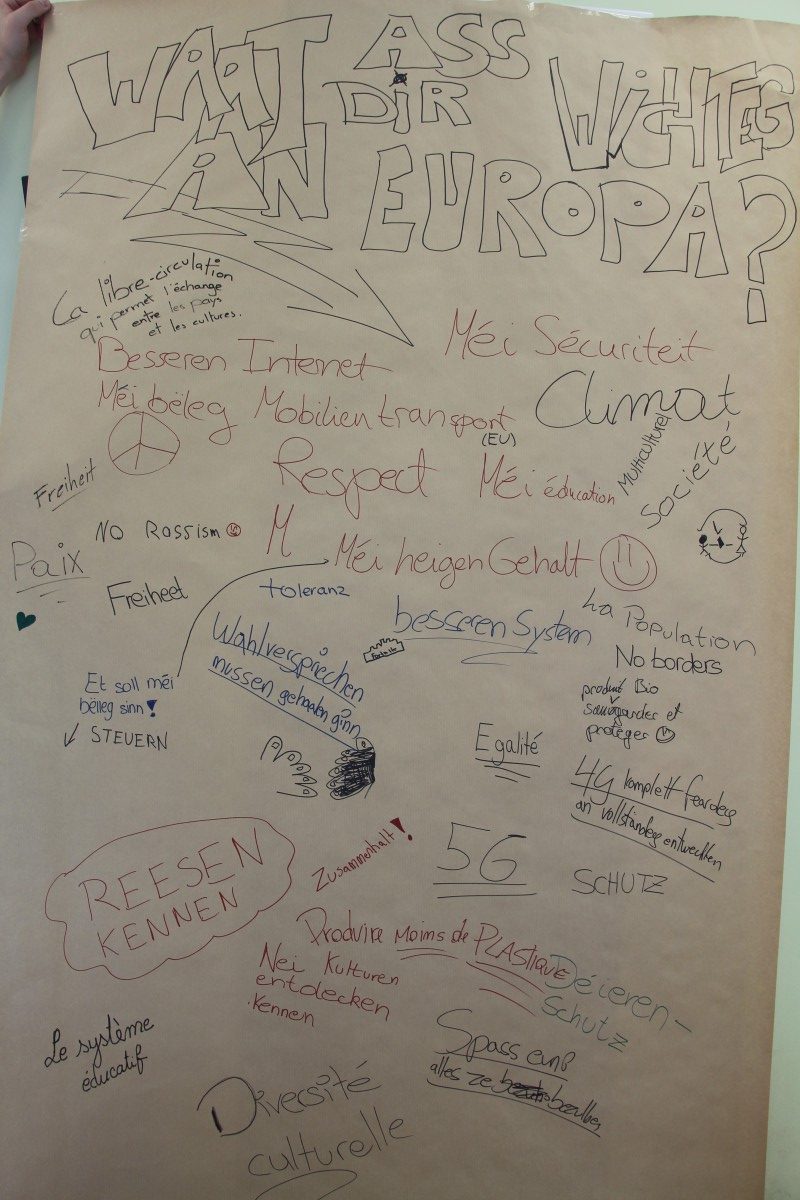 WAAT ASS DIR WICHTEG
AN EUROPA?
La libre-circulation
qui permet l'échange
entre les pays
et les cultures.
Méi Sécuriteit
Besseren Internet
Méi bëleg Mobilien transport
(EU)
Climat
Multiculturel
Société
Respect
Méi éducation
Freiheit
No Rassism
M
Méi heigen Gehalt
Paix
Freiheet
toleranz
besseren System
La Population
No borders
Wahlversprechen
mussen gehaalen ginn
Et soll méi
bëlleg sinn!
STEUERN
produit Bio
sauvgarder et
protéger
Egalité
4G komplett feardeg
an vollstänneg entwecklen
5G
SCHUTZ
REESEN
KENNEN
Zusammenhalt!
Produire moins de PLASTIQUE
Nei Kulturen
entdecken
kennen
Déieren-
Schutz
Le système
éducatif
Spass
alles ze bezuelen
Diversité
culturelle